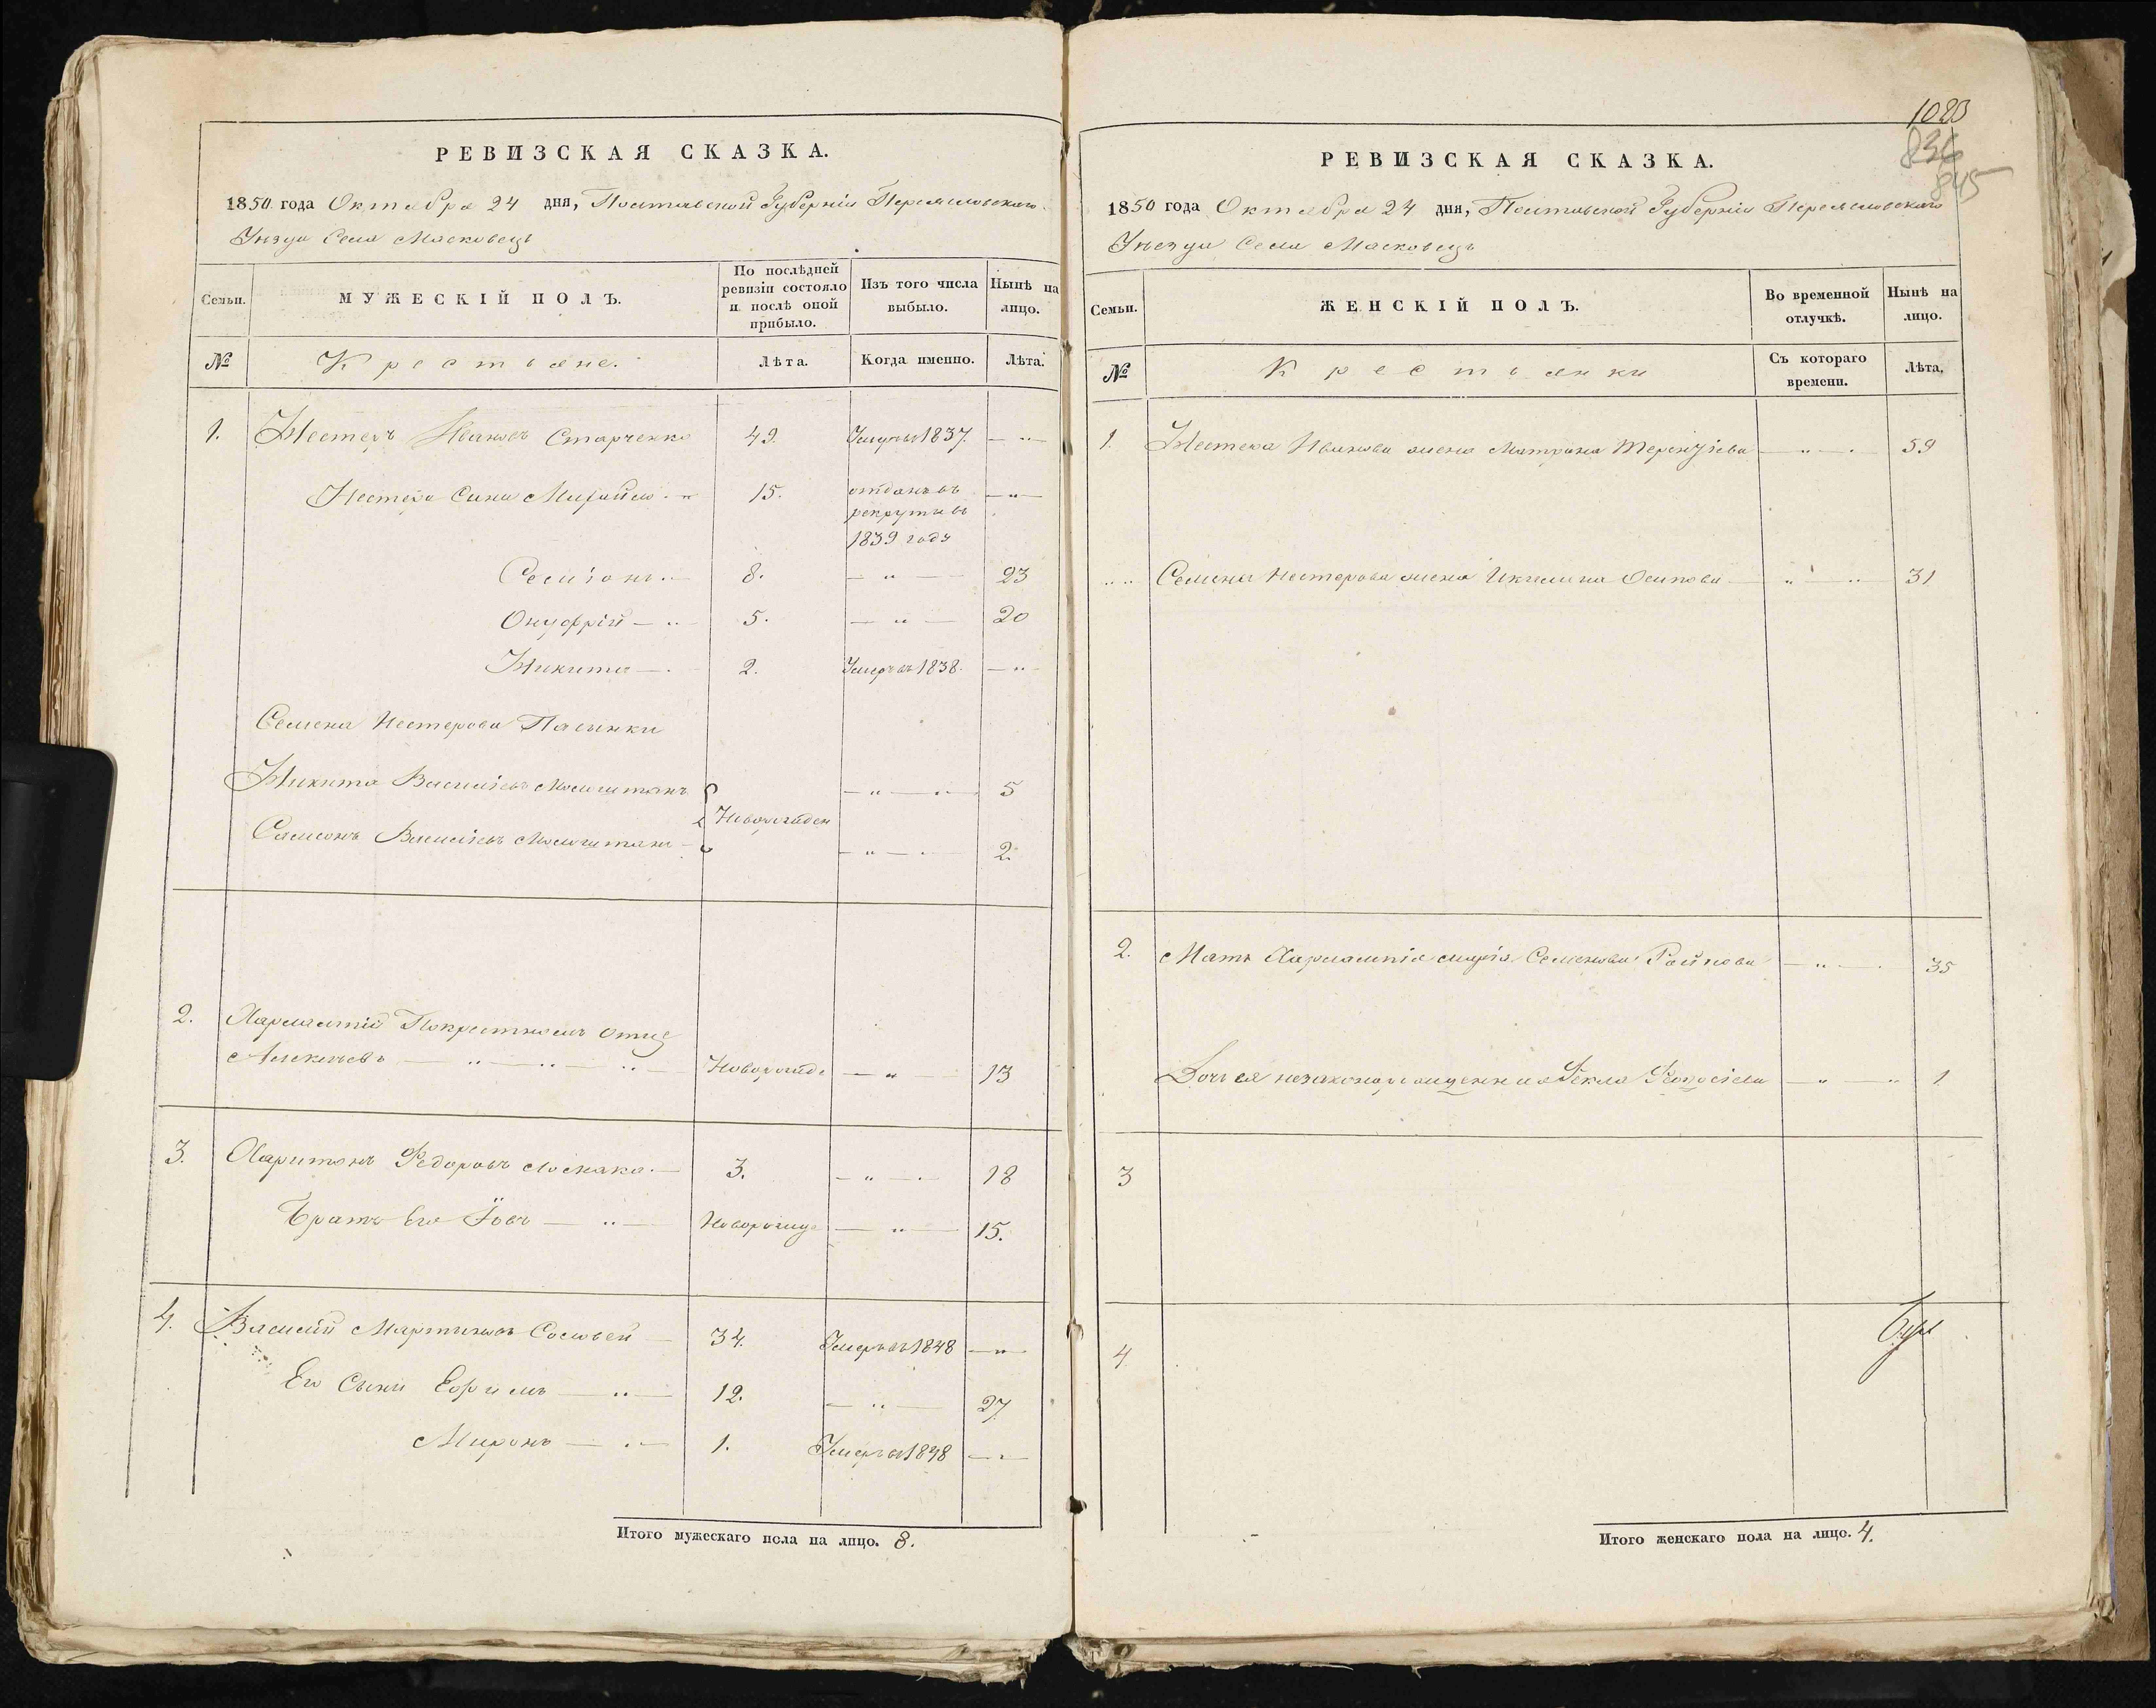 РЕВИЗСКАЯ СКАЗКА.
1850 года Октября 24 дня, Полтавской Губерніи Переяславскаго
Уезда Села Масковецъ
Семьи. МУЖЕСКІЙ ПОЛЪ. По послѣдней ревизіи состояло и послѣ оной прибыло. Изъ того числа выбыло. Нынѣ на лицо.
№ Крестьяне. Лѣта. Когда именно. Лѣта.
1. Нестеръ Ивановъ Старченко 49. Умеръ въ 1837 — „ —
Нестера Сини 15. отданъ въ — „ —
рекруты въ
1839 году
Семіонъ — 8. — „ — 23
Онуфрій — „ 5. — „ — 20
Никита — 2. Умеръ въ 1838. — „
Семена Нестерова Пасынки
Никита Василіевъ — „ — „ — 5
Новорожден
Самсонъ Василіевъ — „ — 2.
2. Харлампій Покрестномъ отце
Алексѣевъ — „ — „ — „ — Новорожде — „ — 13
3. Харитонъ Федоровъ — 3. — „ — 18
Братъ Его Іовъ — „ — Новорожде — „ — 15.
4. Василій Мартиновъ Соловей — 34. Умеръ въ 1848 — „ —
Его Сыни Ефимъ — „ — 12. — „ — 27
Миронъ — „ — 1. Умеръ въ 1848 — „ —
Итого мужескаго пола на лицо. 8.
1020
836
845
РЕВИЗСКАЯ СКАЗКА.
1850 года Октября 24 дня, Полтавской Губерніи Переяславскаго
Уезда Села Масковецъ
Семьи. ЖЕНСКІЙ ПОЛЪ. Во временной отлучкѣ. Нынѣ на лицо.
№ Крестьянки Съ котораго времени. Лѣта.
1. Нестера Иванова жена Матрона Терентіева — „ — 59
„ „ Семена Нестерова жена Акилина Осипова — „ — „ 31
2. Мать Харлампія Марія Семенова — „ — 35
Дочь ея незаконорожденная Фекла — „ — „ 1
3
4
Итого женскаго пола на лицо. 4.